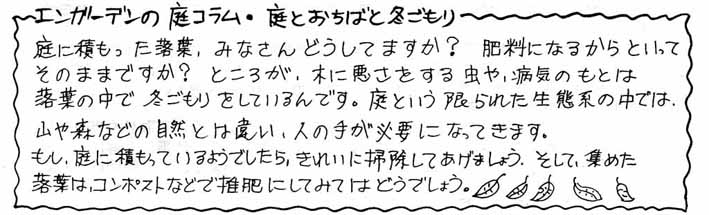 エンガーデンの庭コラム・庭とおちばと冬ごもり
庭に積もった落葉，みなさんどうしてますか？ 肥料になるからといって
そのままですか？ ところが，木に悪さをする虫や，病気のもとは
落葉の中で冬ごもりをしているんです。庭という限られた生態系の中では，
山や森などの自然とは違い，人の手が必要になってきます。
もし，庭に積もっているようでしたら，きれいに掃除してあげましょう．そして，集めた
落葉は，コンポストなどで堆肥にしてみてはどうでしょう。